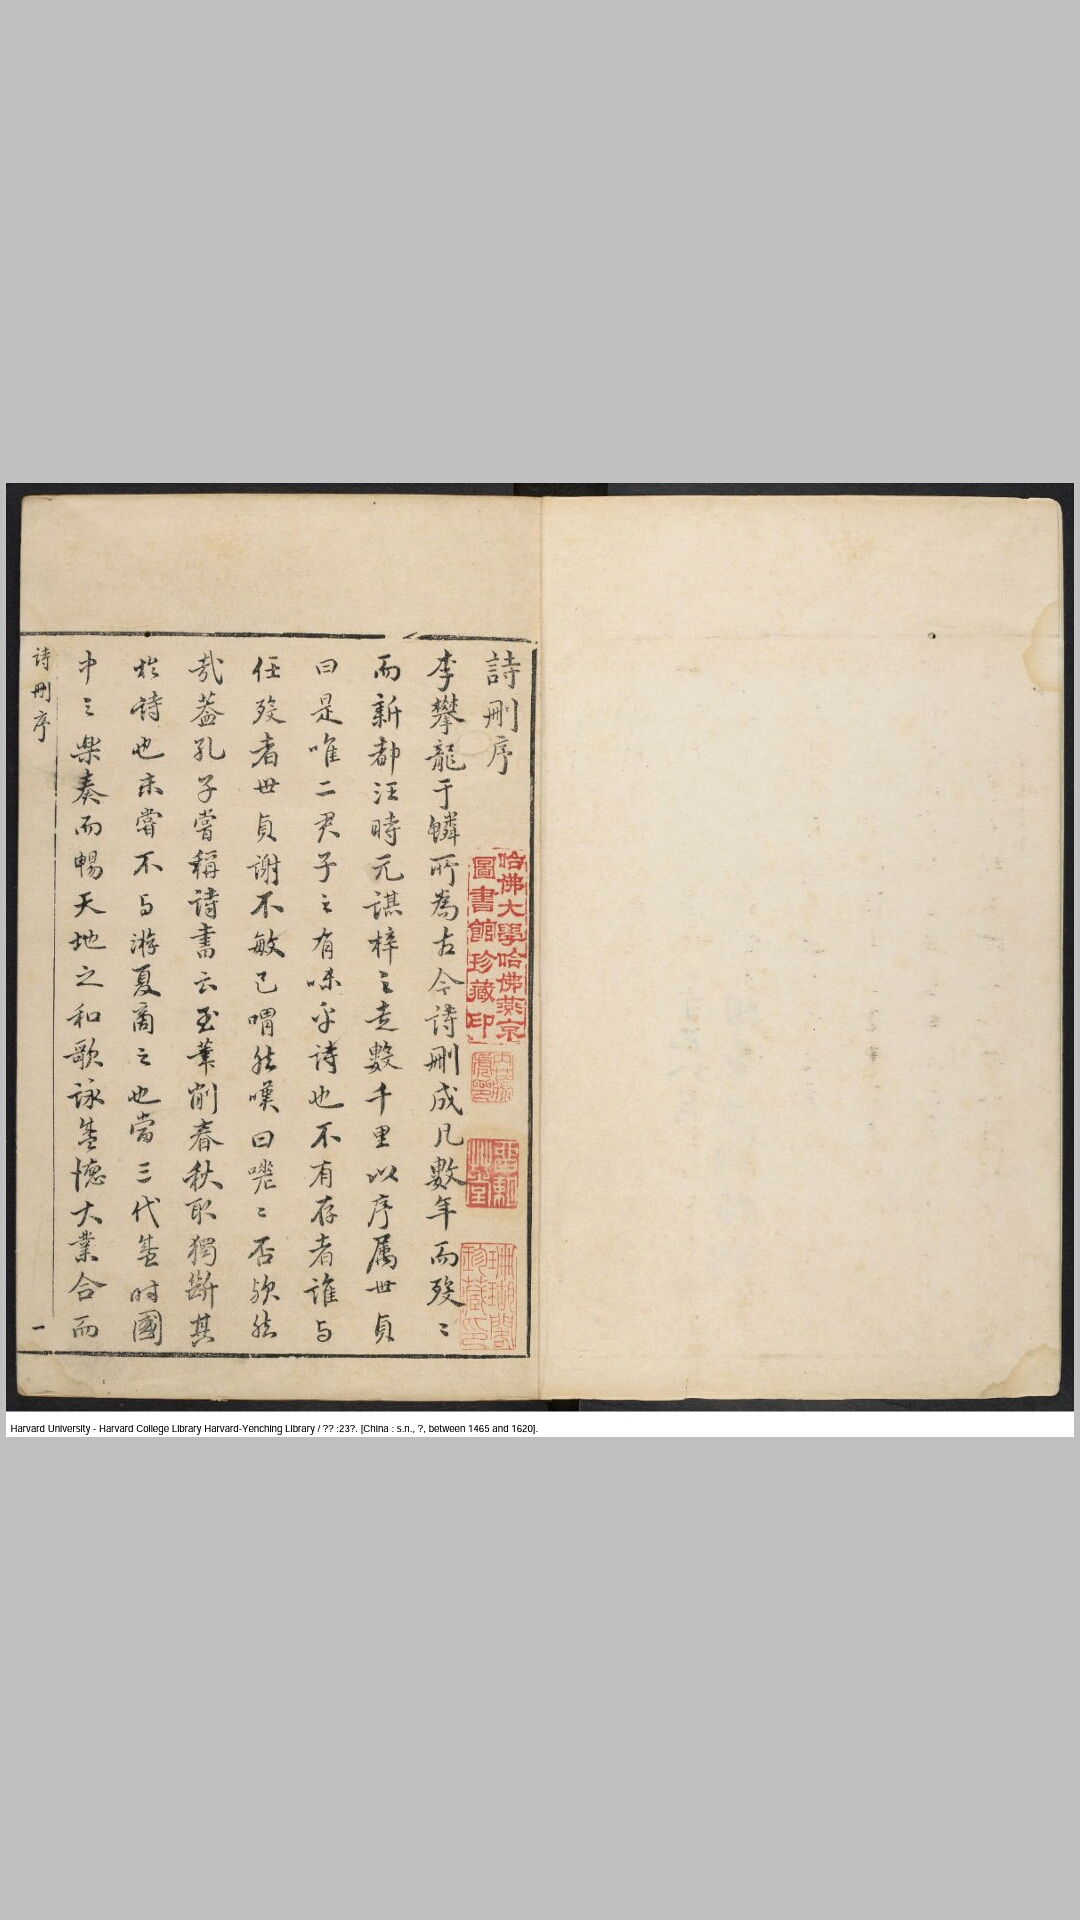 詩刪序
李攀龍于鱗所為古今詩刪成凡數年而歿〻
而新都汪時元謀梓之走數千里以序屬世貞
曰是唯二君子之有味乎詩也不有存者誰与
任歿者世貞謝不敏已喟然嘆曰嗟〻否歟然
哉蓋孔子嘗稱詩書云至筆削春秋取獨斷其
於詩也未嘗不与游夏商之也當三代盛时國
中之樂奏而暢天地之和歌詠盛德大業合而
詩刪序
一
哈佛大學哈佛燕京
圖書館珍藏印
珊瑚閣
珍藏印
Harvard University - Harvard College Library Harvard-Yenching Library / ?? :23?. [China : s.n., ?, between 1465 and 1620].